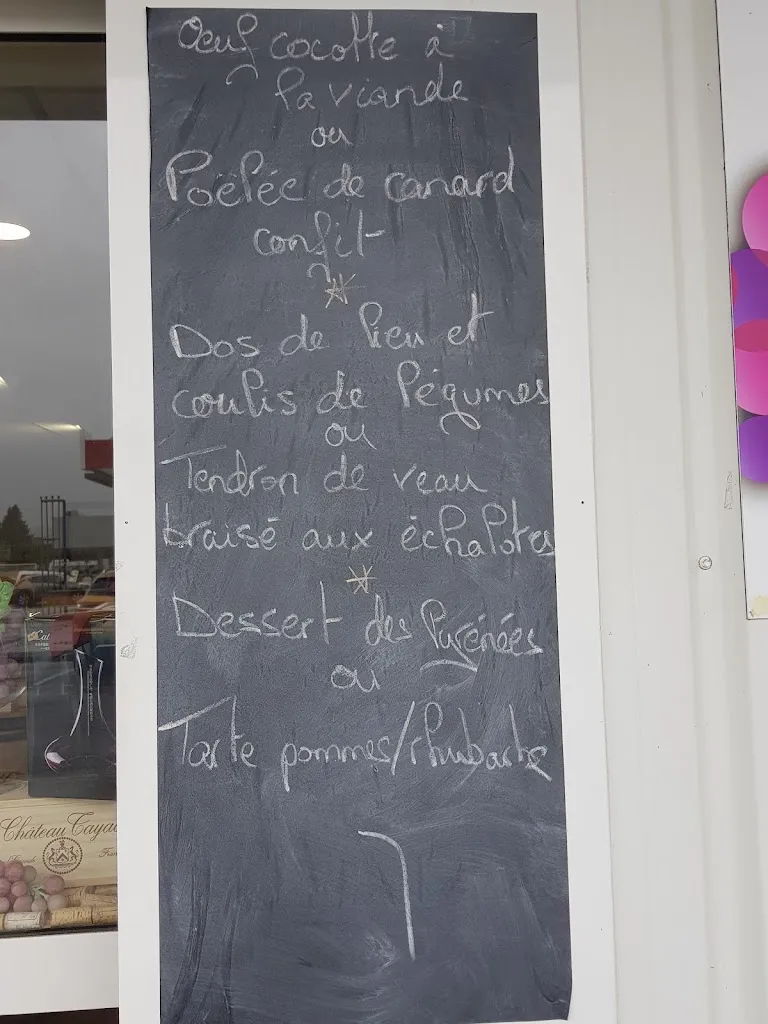 Oeuf cocotte à
la viande
ou
Poêlée de canard
confit
Dos de lieu et
coulis de légumes
ou
Tendron de veau
braisé aux échalotes
Dessert des Pyrénées
ou
Tarte pommes/rhubarbe
Château Cayac